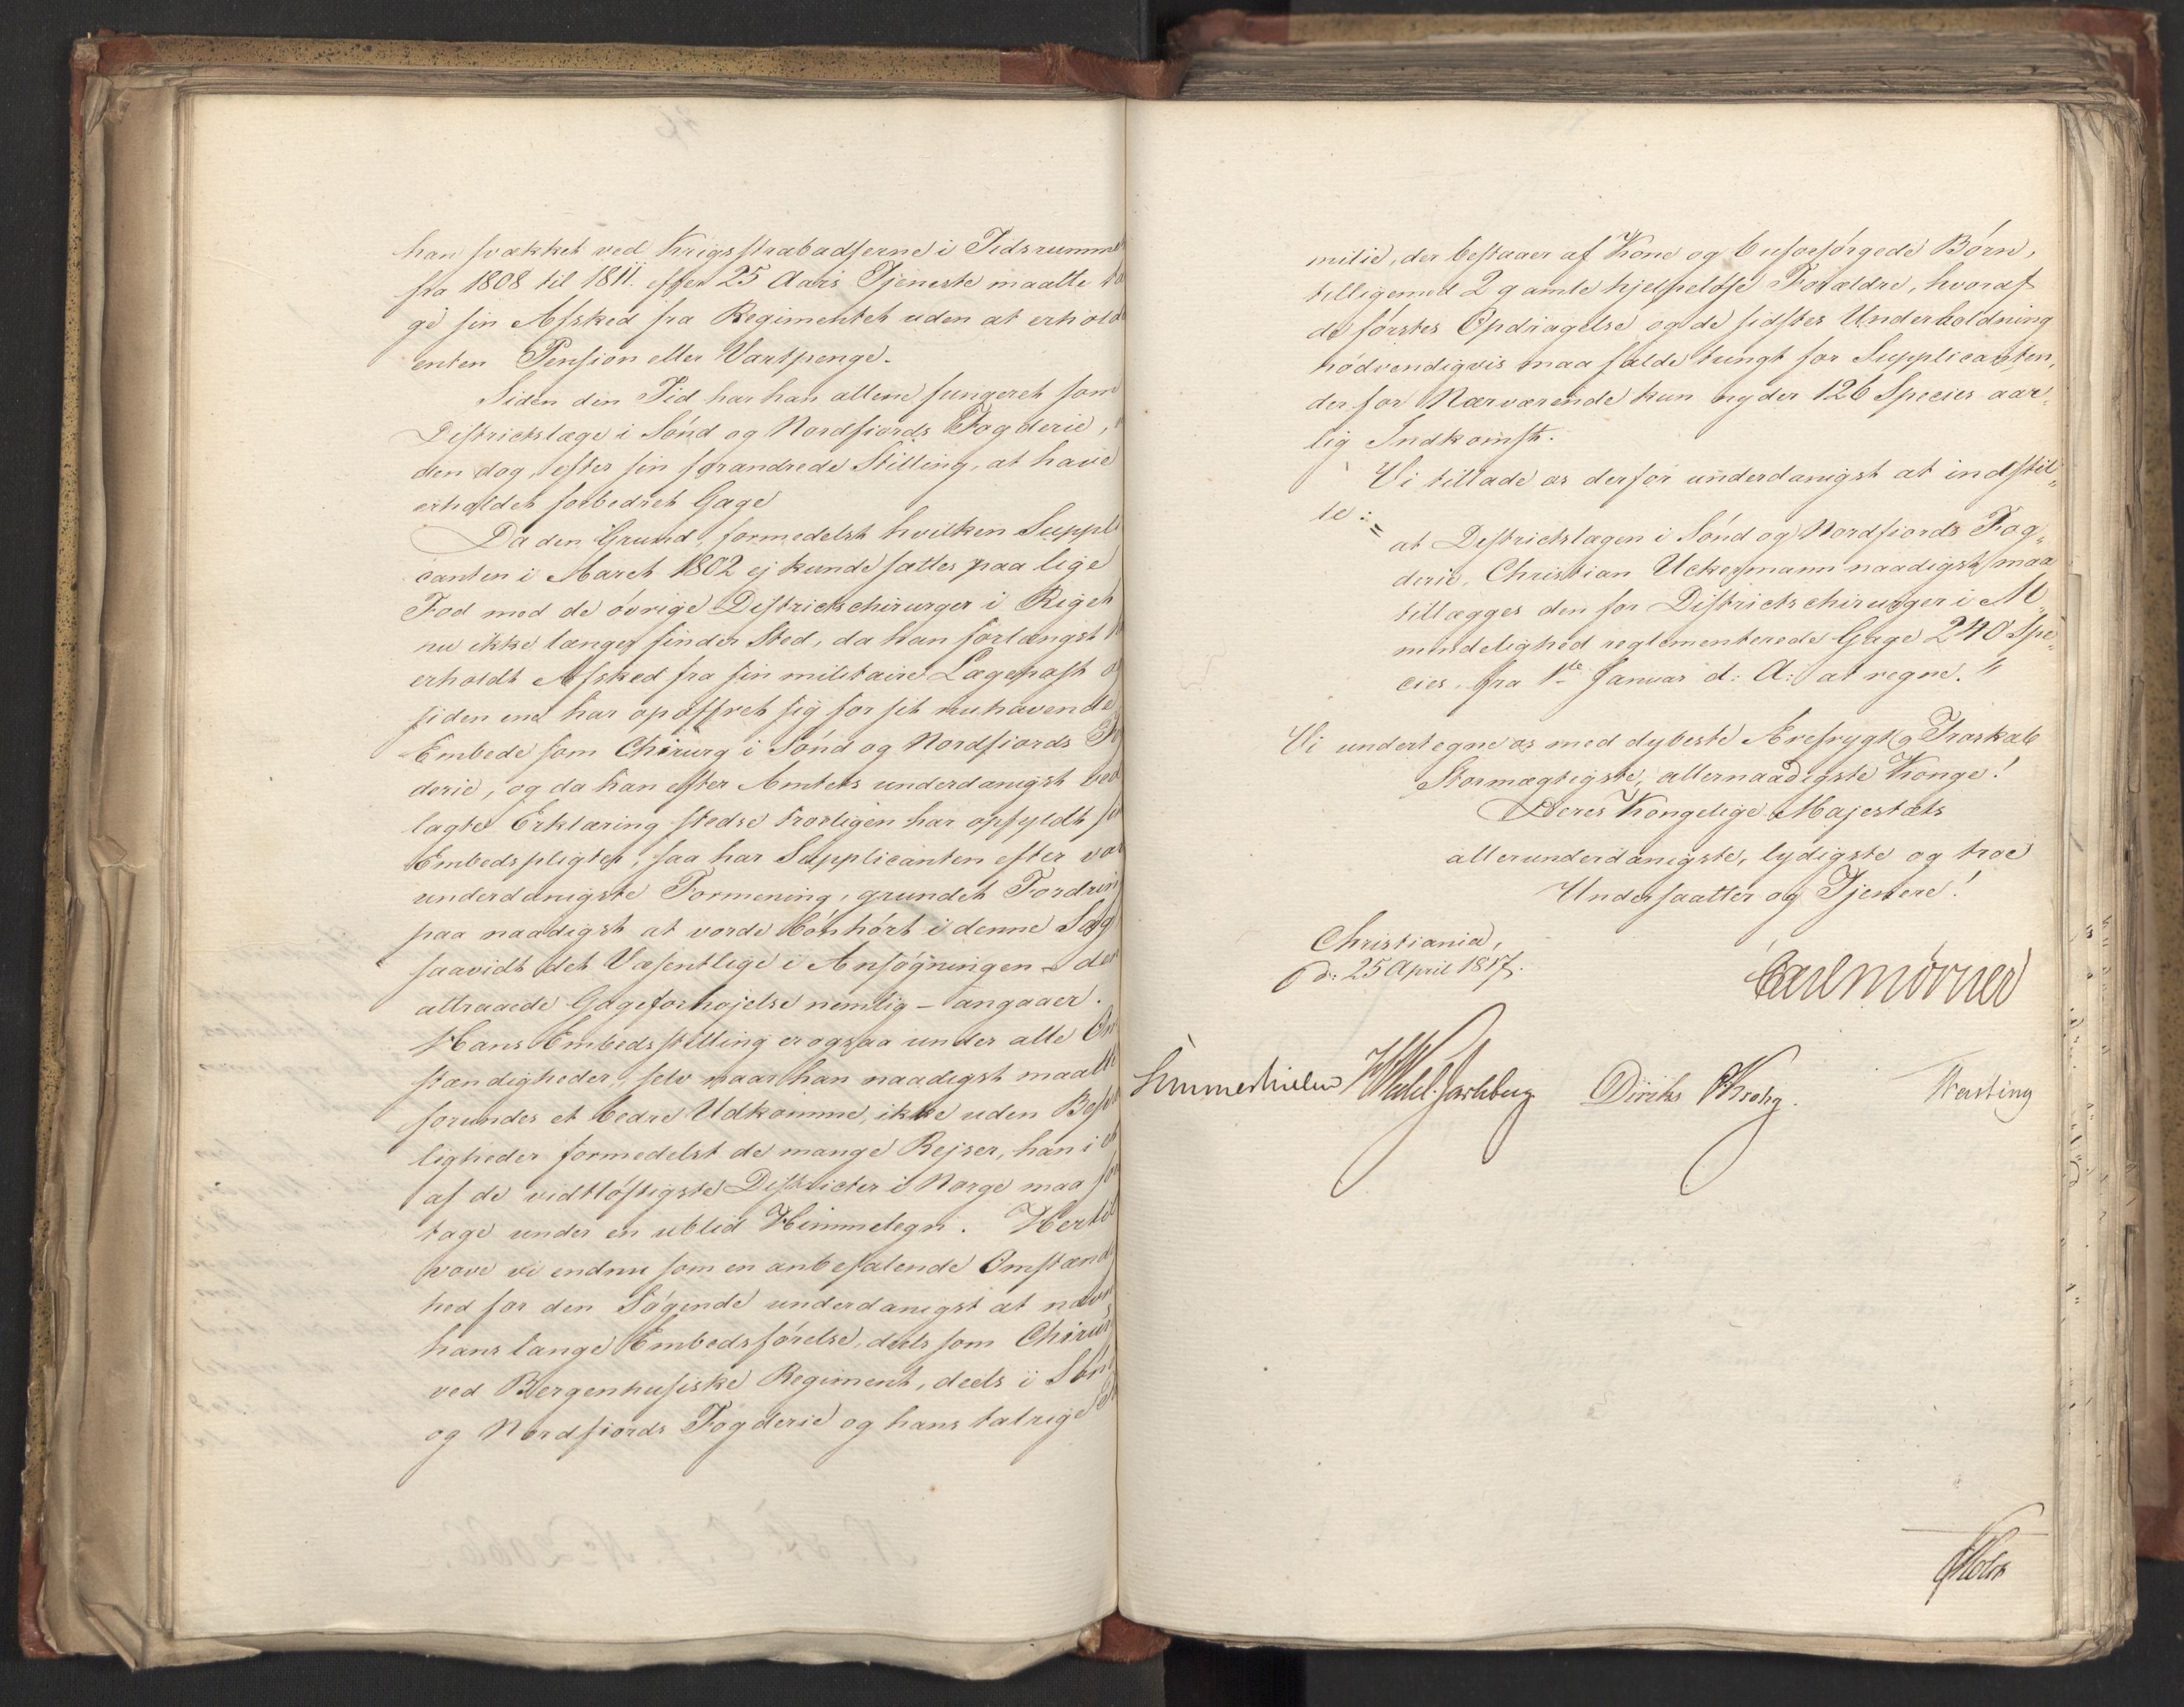 han svækket ved Krigsstrabadserne i Tidsrumme
fra 1808 til 1811. efter 25 Aars Tjeneste maatte ta
ge sin Afsked fra Regimentet uden at erhold
enten Pension eller Vartpenge.
Siden den Tid har han allene fungeret som
Districtslæge i Sönd og Nordfiords Fogderie,
den dog, efter sin forandrede Stilling, at have
erholdet forbedret Gage
Da den Grund, formedelst hvilken Suppli
canten i Aaret 1802 ej kunde sættes paa lige
Fod med de övrige Districtschirurger i Riget
nu ikke længer finder Sted, da han forlængst
erholdt Afsked fra sin militaire Lægepost o
siden ene har opoffret sig for sit nuhavende
Embede som Chirurg i Sönd og Nordfiords Fo
derie, og da han efter Amtets underdanigst ved
lagte Erklæring stedse troeligen har opfyldt si
Embedspligter, saa har Supplicanten efter vor
underdanigste Formening, grundet Fordrin
paa naadigst at vorde bönhört i denne Sag
saavidt det Væsentlige i Ansögningen - den
attraaede Gageforhöjelse nemlig - angaaer.
Hans Embedsstilling er ogsaa under alle Om
stændigheder, selv naar han naadigst maatte
forundes et bedre Udkomme, ikke uden Besvæ
ligheder formedelst de mange Rejser, han i et
af de vidtlöftigste Districter i Norge maa for
tage under en ublid Himmelegn. Hertil
vove vi endnu som en anbefalende Omstænd
hed for den Sögende underdanigst at nævn
hans lange Embedsförelse, deels som Chirur
ved Bergenhusiske Regiment, deels i Sön
og Nordfiords Fogderie og hans talrige Fa
milie, der bestaaer af Kone og 6 uforsörgede Börn,
tilligemed 2 gamle hjelpelöse Forældre, hvoraf
de förstes Opdragelse og de sidstes Underholdning
nödvendigvis maa falde tungt for Supplicanten,
der for Nærværende kun nyder 126 Species aar„
lig Indkomst.
Vi tillade os derfor underdanigst at indstil„
le:
„at Districtslægen i Sönd og Nordfiords Fog„
derie, Christian Uckermann naadigst maa
tillægges den for Districtschirurger i Al„
mindelighed reglementerede Gage 240 Spe„
cies, fra 1ste Januar d: A: at regne."
Vi undertegne os med dybeste Ærefrygt og Troskab
Stormægtigste, allernaadigste Konge!
Deres Kongelige Majestæts
allerunderdanigste, lydigste og troe
Undersaatter og Tjenere!
Christiania,
d: 25 April 1817.
Carl Mörner
Sommerhielm HWedel-Jarlsberg Diriks Krohg. Fasting
Holst